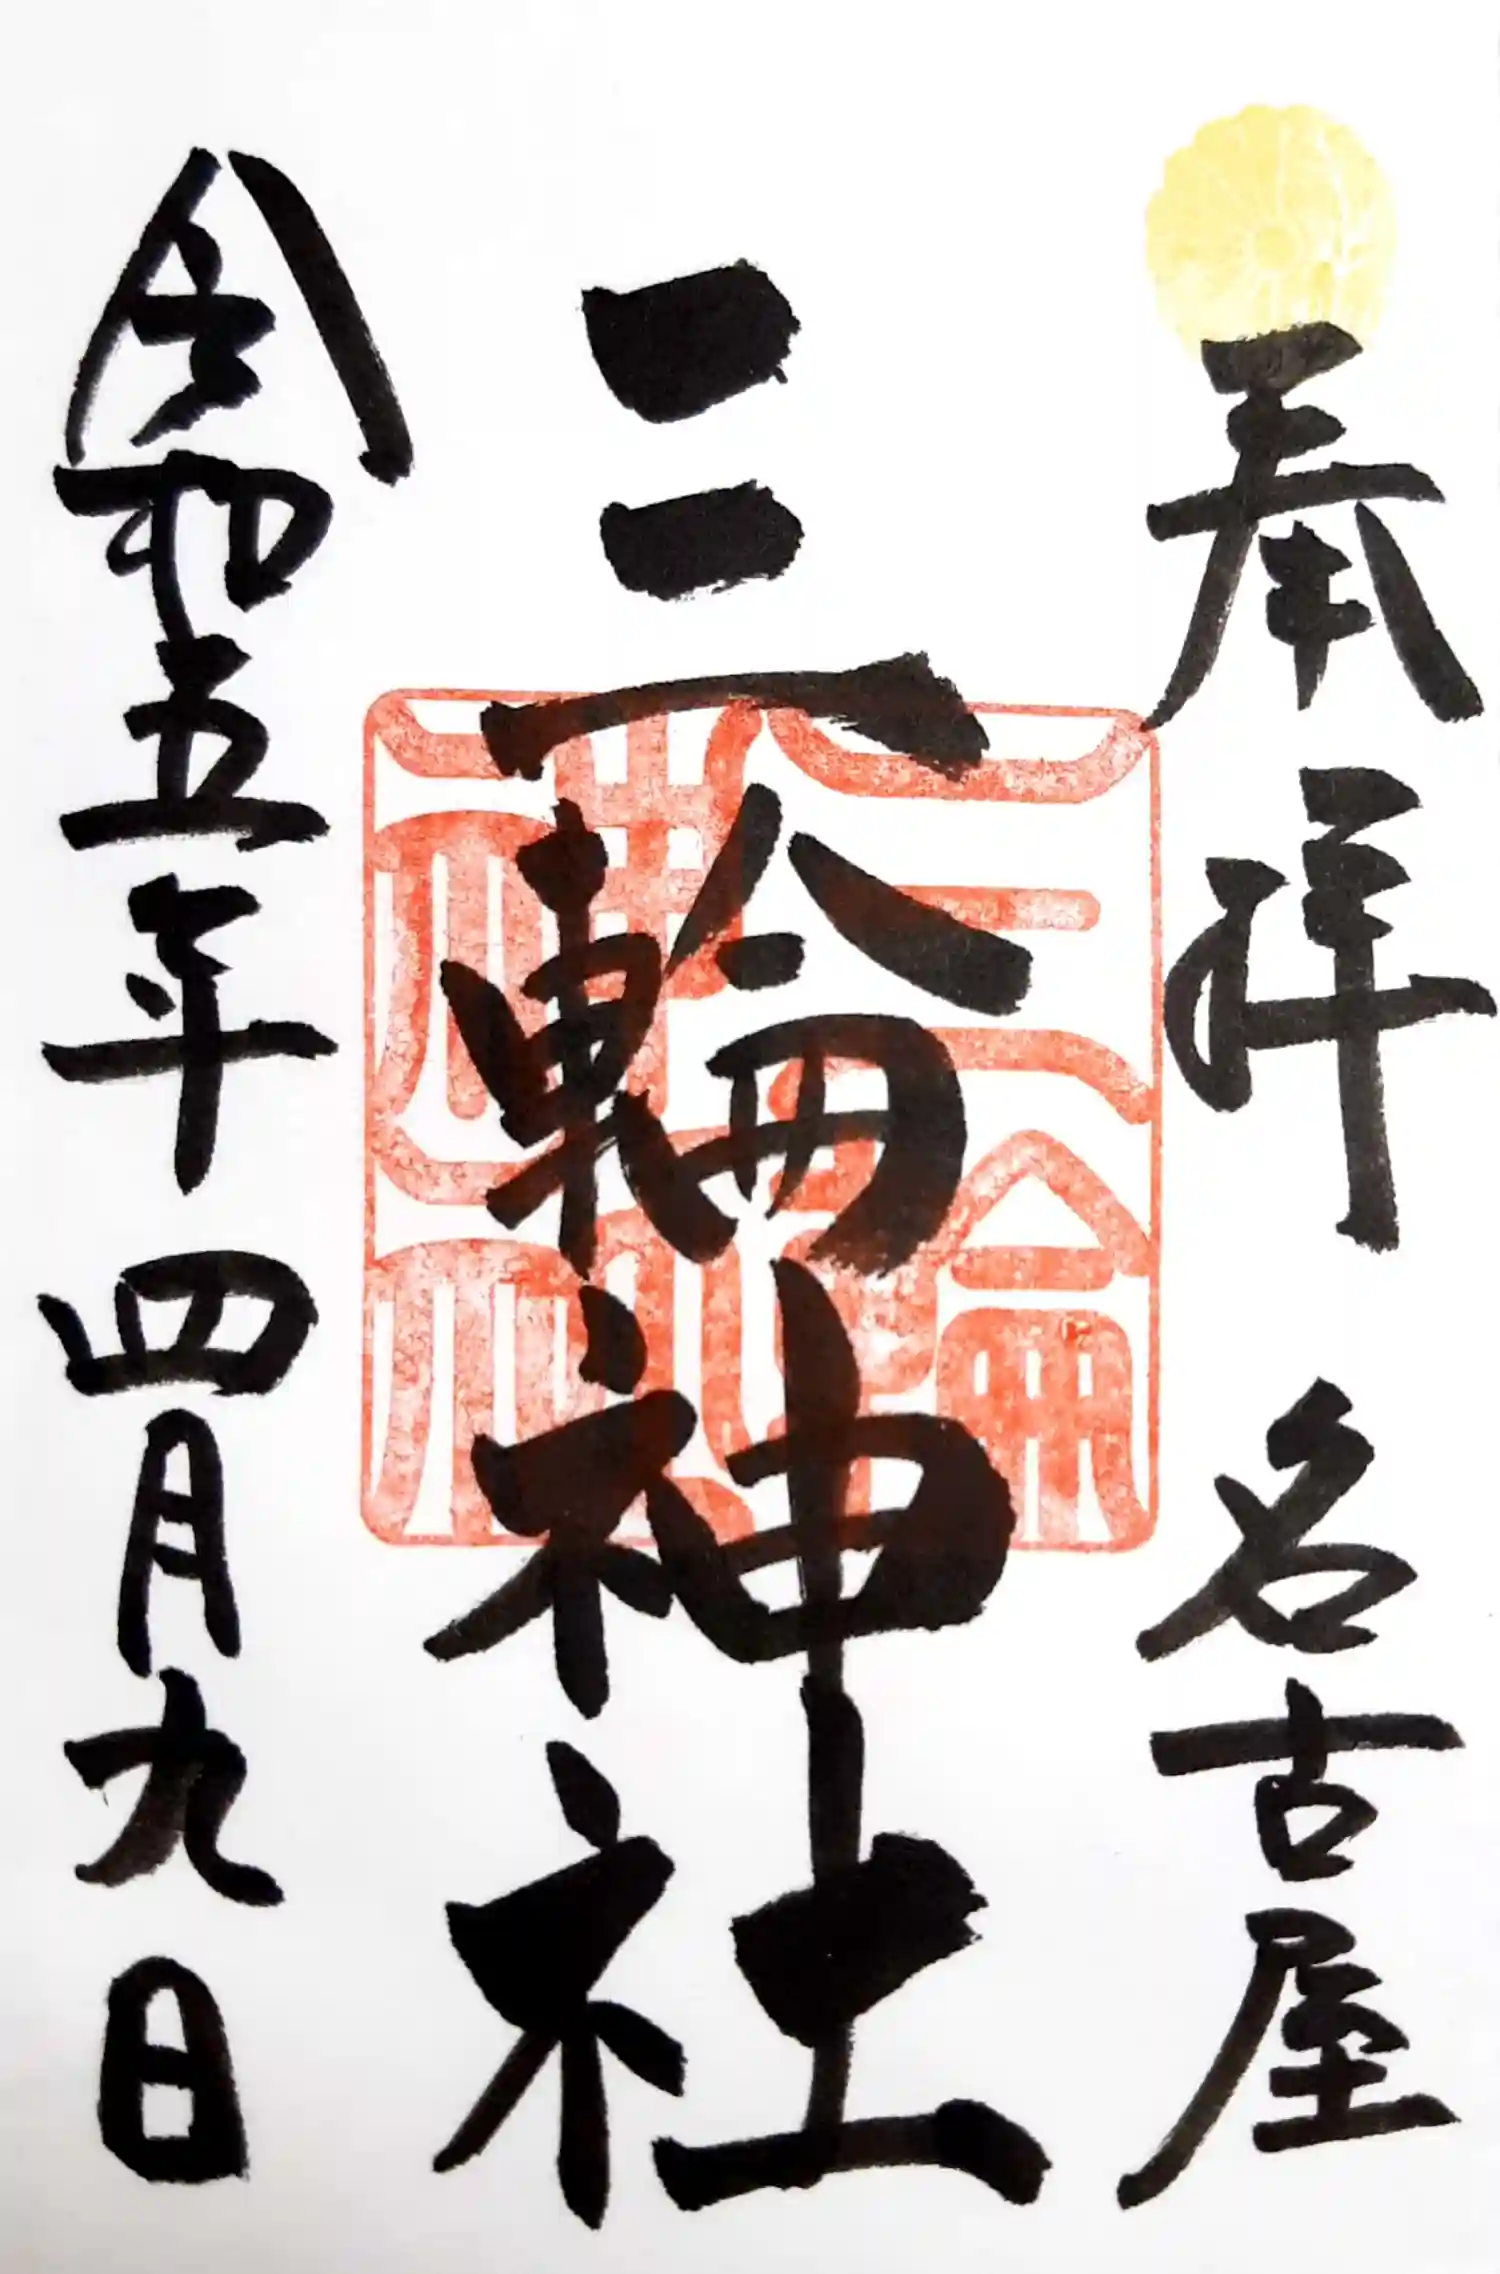 奉拝 名古屋
三輪神社
三輪神社
令和五年 四月九日